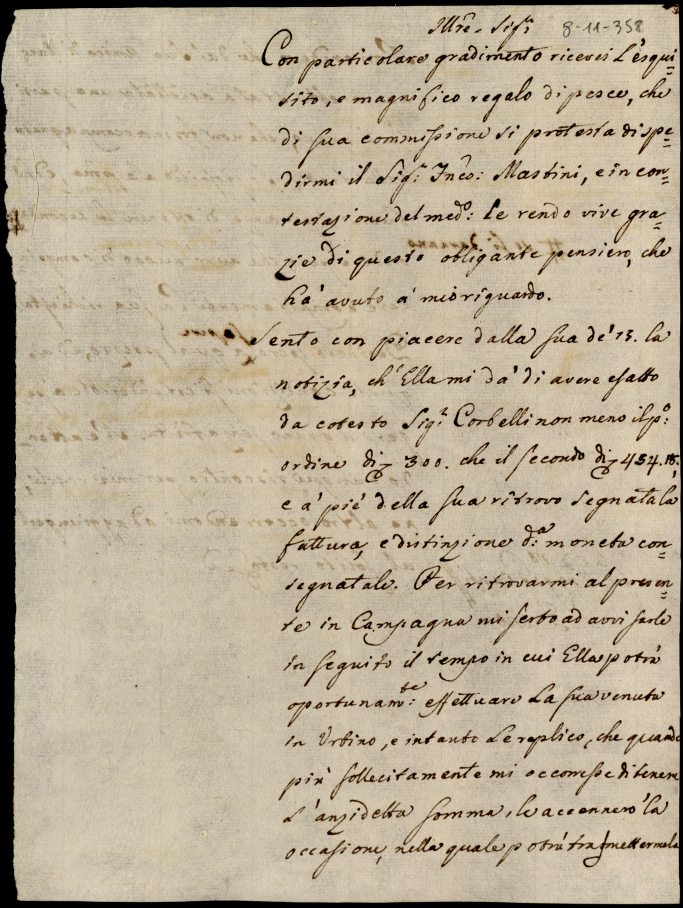 Illre. Sigr: 8-11-358
Con particolare gradimento ricevei L'esqui=
sito, e magnifico regalo di pesce, che
di sua commissione si protesta dispe=
dirmi il Sigr: Fnco: Mastini, e in con=
testazione del medo: Le rendo vive gra=
zie di questo obligante pensiero, che
ha' avuto a' mio riguardo.
Sento con piacere dalla sua de' 15. la
notizia, ch'Ella mi da' di avere esatto
da cotesto Sigr: Corbelli non meno il po:
ordine di 300. che il secondo di 454.18.,
e a' pie' della sua ritrovo segnata la
fattura, e distinzione da: moneta con=
segnatale. Per ritrovarmi al presen=
te in Campagna mi serbo ad avvisarle
in seguito il tempo in cui Ella potrà
oportunamte: effettuare La sua venuta
in Urbino, e intanto Le replico, che quando
più sollecitamente mi occoresse di tenere
L'anzidetta somma, le accennero' la
occasione, nella quale potrà trasmettermela